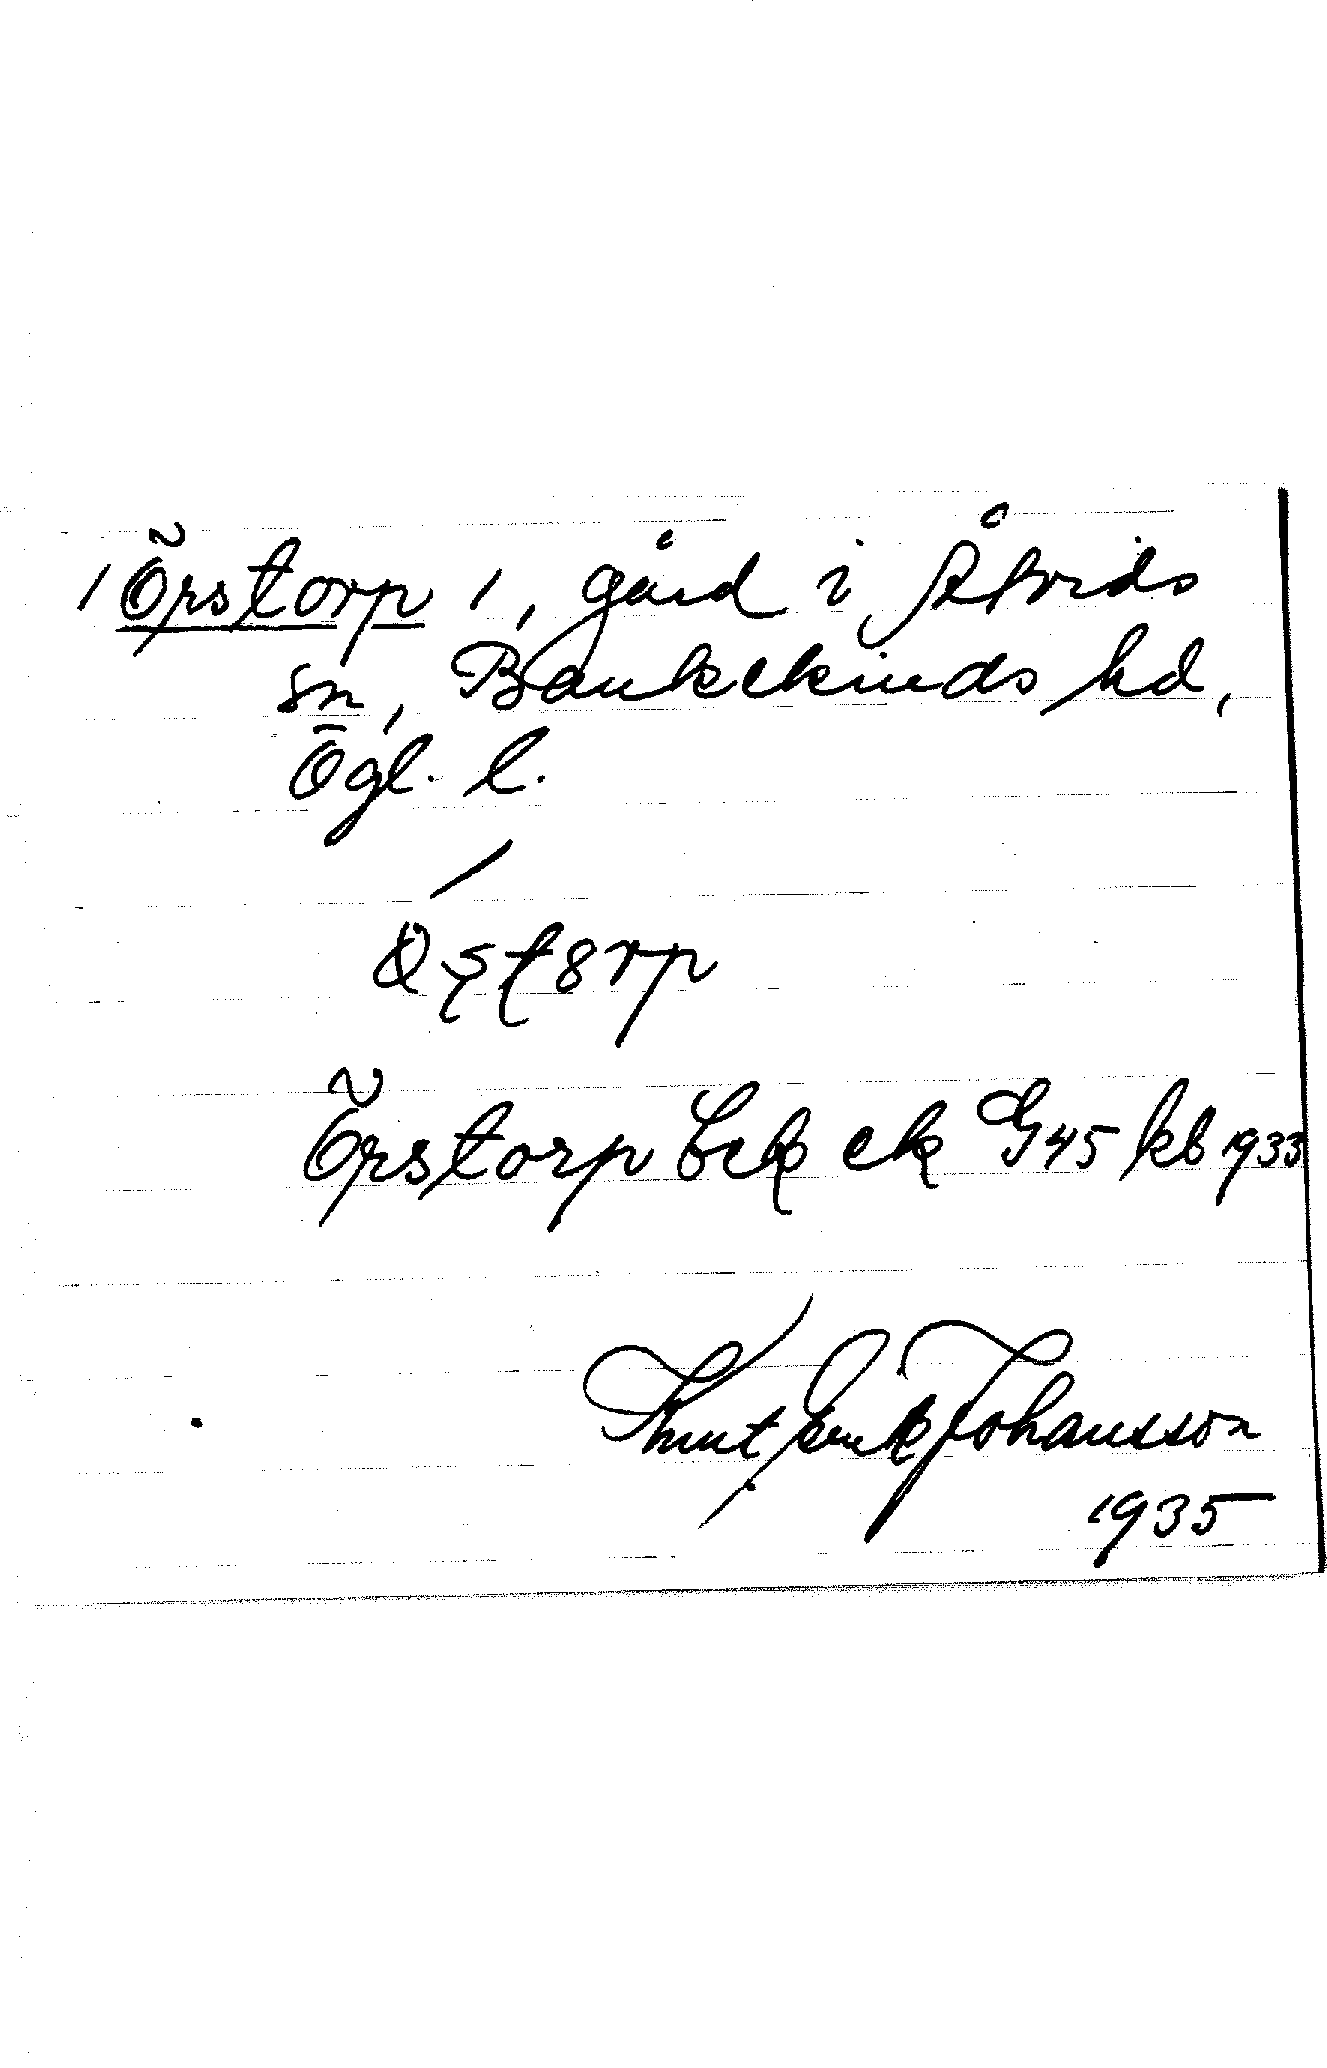 / Örstorp 1, gård i Åtvids
sn, Bankekinds hd,
Ögl. l.
/
Örstorp bek ek G45 kb 1933
Knut Erik Johansson
1935